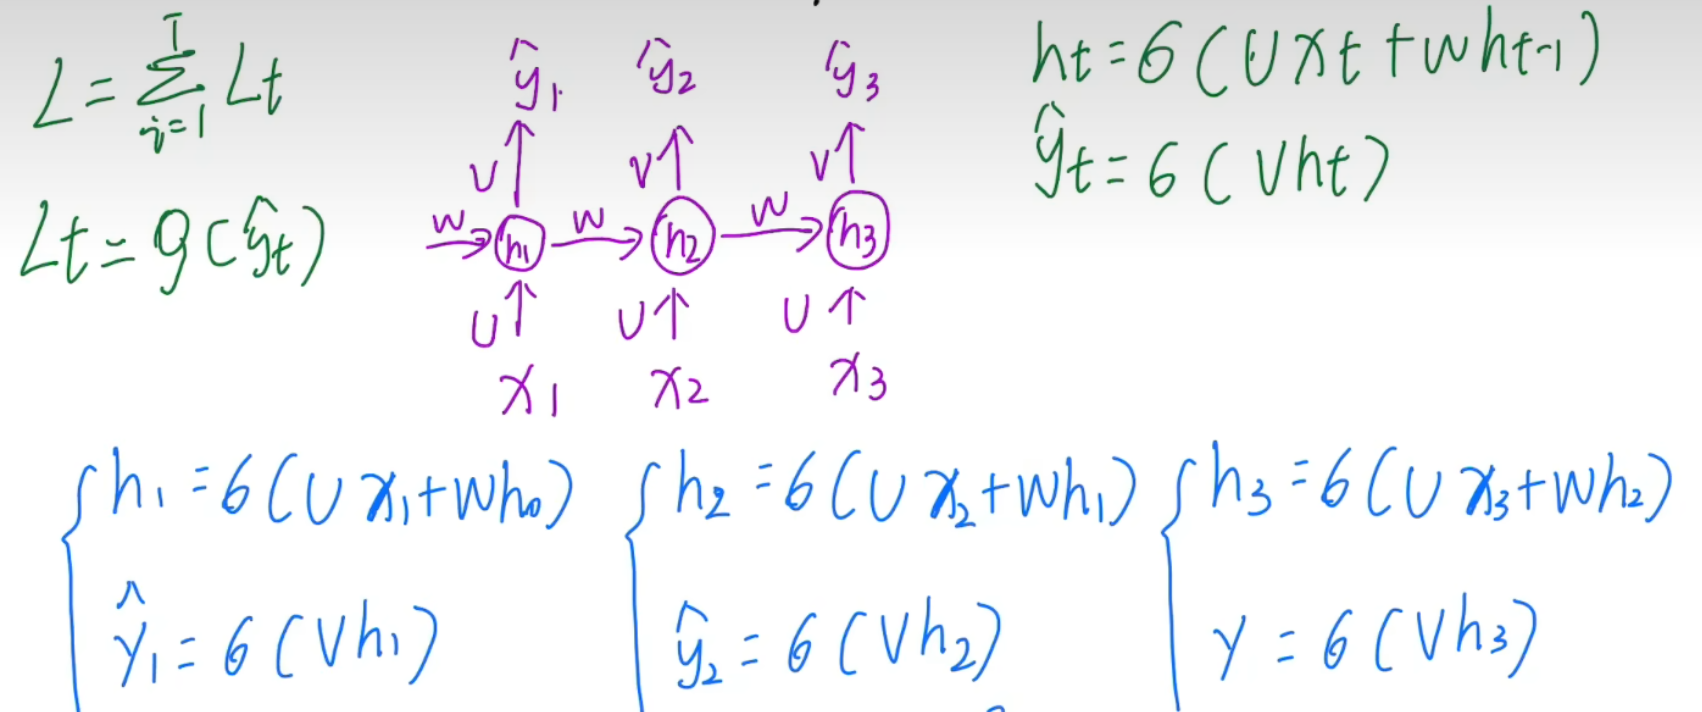 L = Σ_{i=1}^{T} Lt
Lt = g(ŷt)
ŷ1 ŷ2 ŷ3
U V V
W h1 W h2 W h3
U U U
x1 x2 x3
ht = 6(Uxt + Wht-1)
ŷt = 6(Vht)
{h1 = 6(Ux1 + Wh0)
ŷ1 = 6(Vh1)
{h2 = 6(Ux2 + Wh1)
ŷ2 = 6(Vh2)
{h3 = 6(Ux3 + Wh2)
y = 6(Vh3)